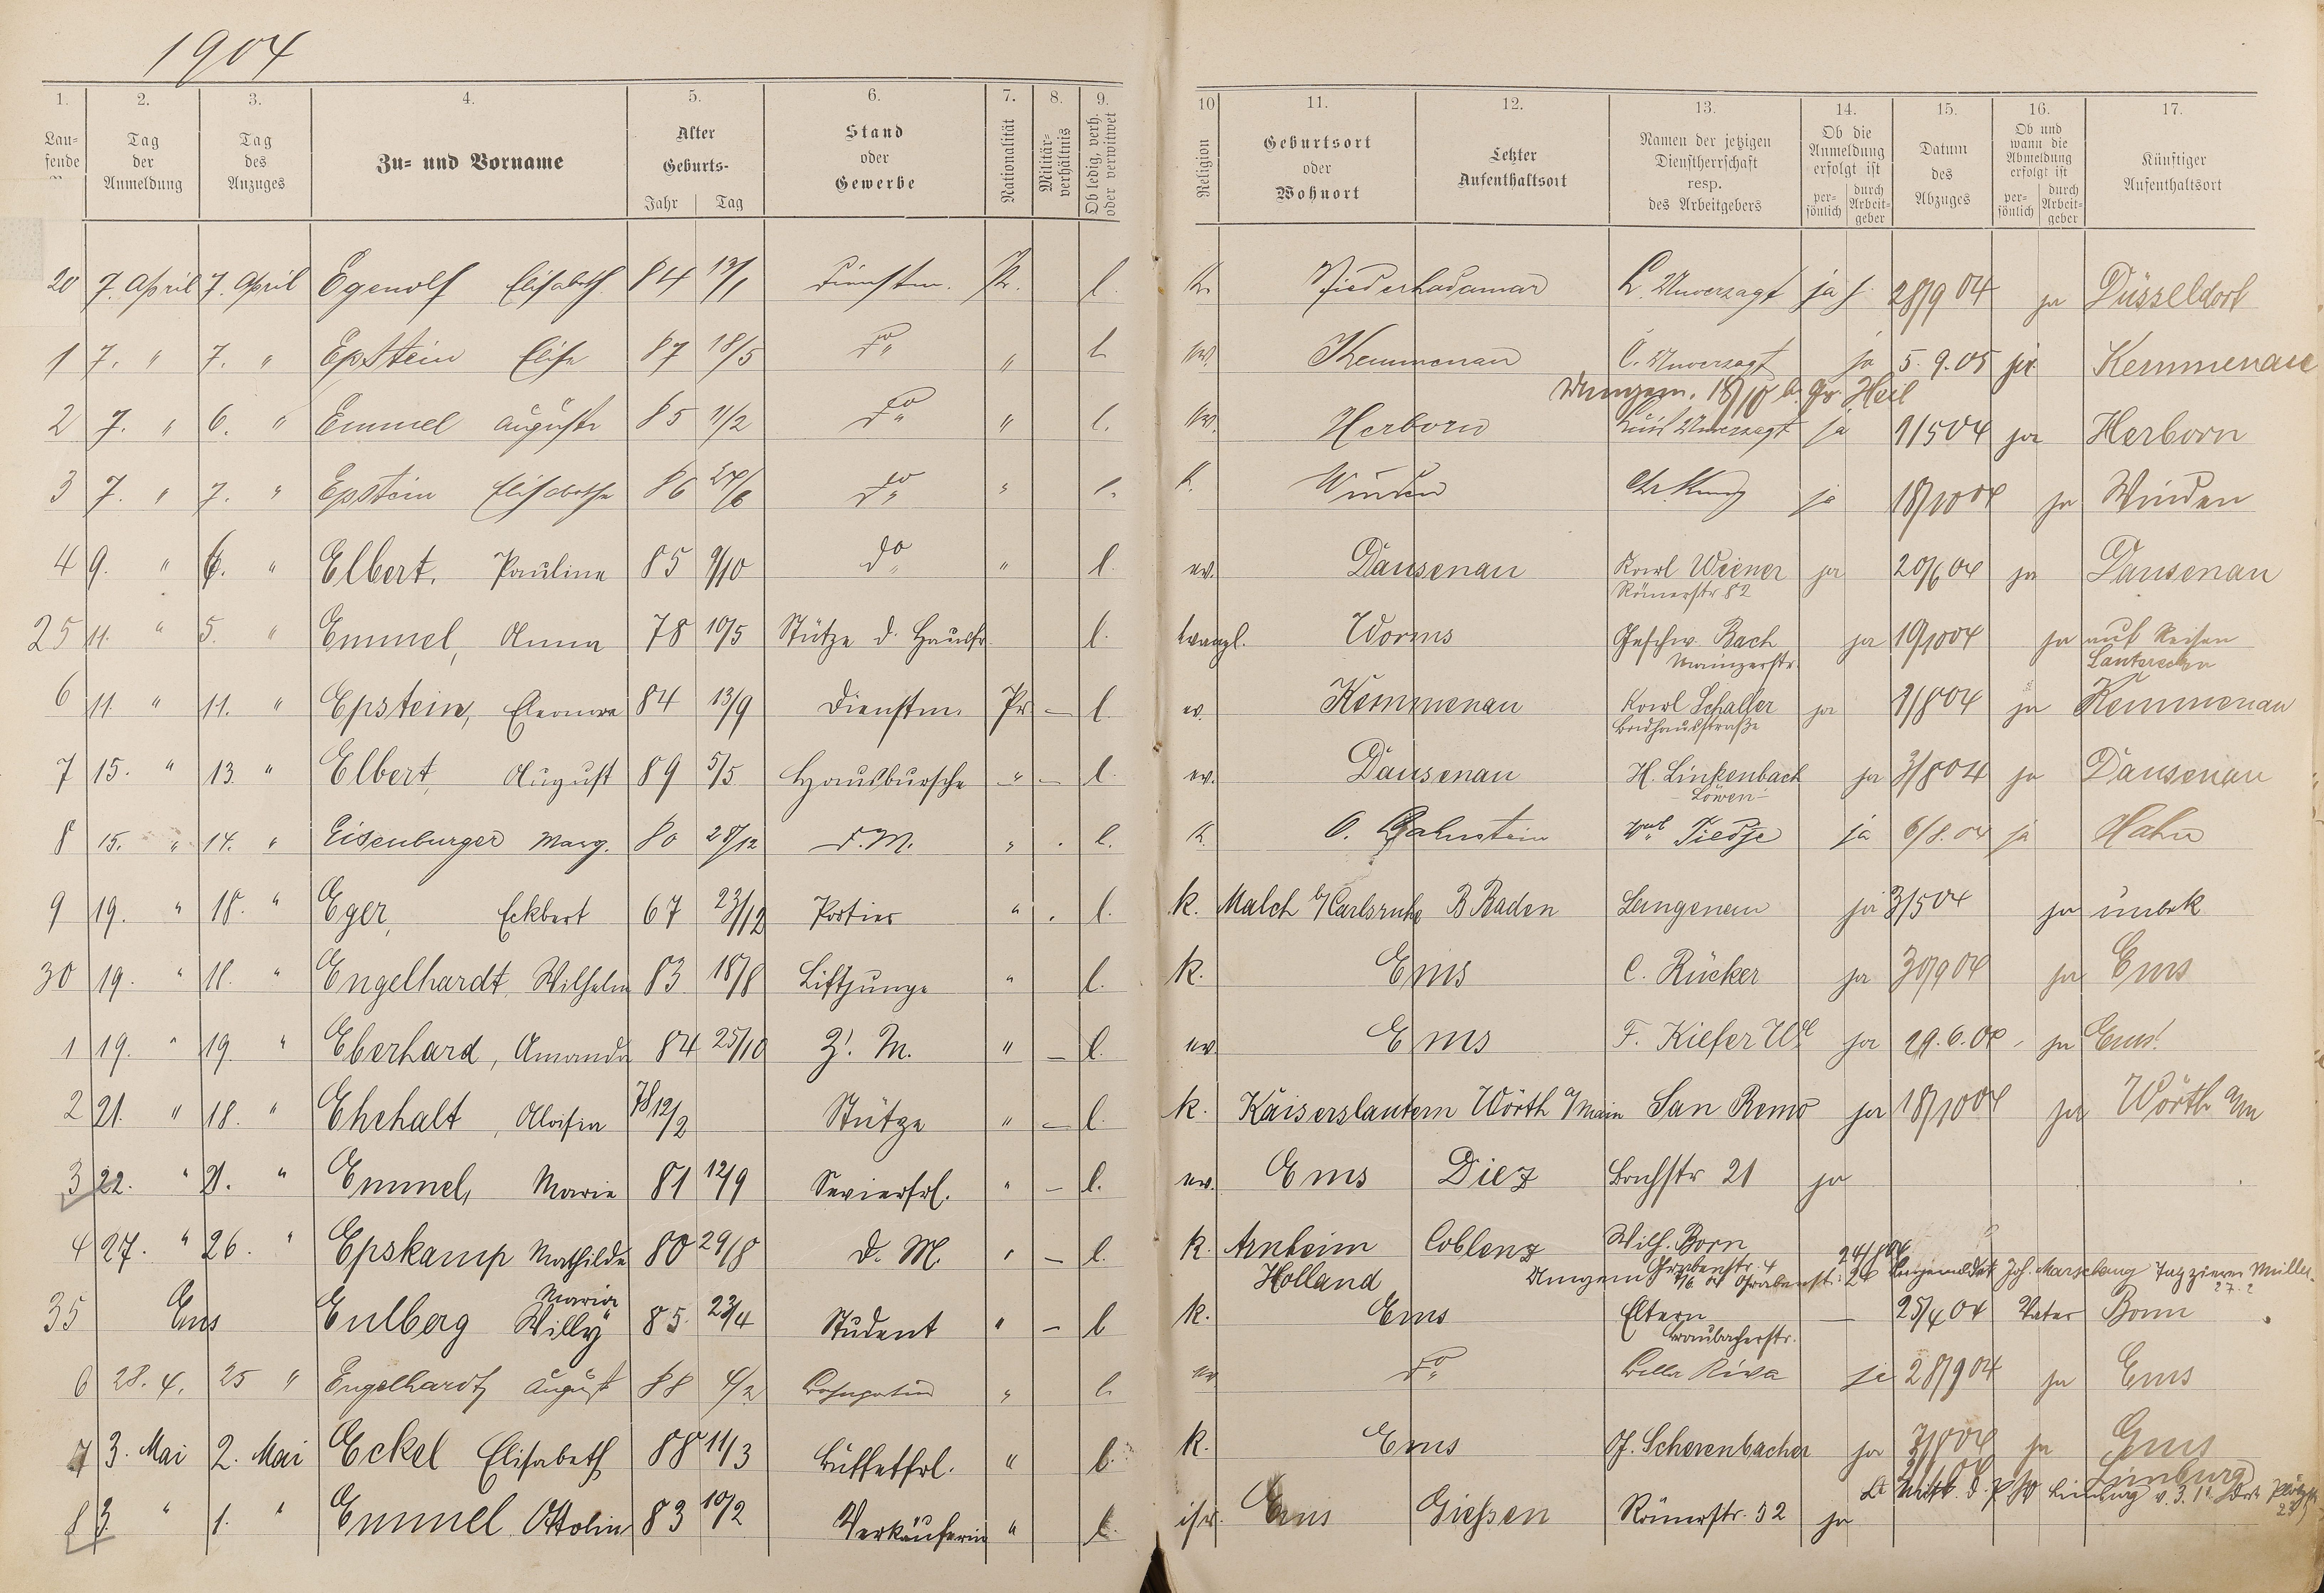 1904
1. 2. 3. 4. 5. 6. 7. 8. 9. 10 11. 12. 13. 14. 15. 16. 17.
Lau-
fende
Tag
der
Anmeldung
Tag
des
Anzuges
Zu- und Vorname
Alter
Geburts-
Jahr Tag
Stand
oder
Gewerbe
Nationalität
Militär-
verhältnis
Ob ledig, verh.
oder verwitwet
Religion
Geburtsort
oder
Wohnort
Letzter
Aufenthaltsort
Namen der jetzigen
Dienstherrschaft
resp.
des Arbeitgebers
Ob die
Anmeldung
erfolgt ist
per-
sönlich
durch
Arbeit-
geber
Datum
des
Abzuges
Ob und
wann die
Abmeldung
erfolgt ist
per-
sönlich
durch
Arbeit-
geber
Künftiger
Aufenthaltsort
20 7. April 7. April Egenolf Elisabeth 84 13/1 Dienstm. Pr. l. k. Niederhadamar L. Unverzagt ja 28/9 04 ja Düsseldorf
1 7. " 7. " Epstein Elise 87 18/5 do " l. ev. Kemmenau C. Unverzagt ja 5.9.05 ja Kemmenau
Umgem. 18/10 b. Gr. Heil
2 7. " 6. " Emmel Auguste 85 11/2 do " l. ev. Herborn Unverzagt ja 1/5 04 ja Herborn
3 7. " 7. " Epstein Elisabetha 86 24/6 do " l. k. Winden Chr. Kunz ja 18/10 04 ja Winden
4 9. " 6. " Elbert, Pauline 85 9/10 do " l. ev. Dausenau Karl Wiener ja 20/6 04 ja Dausenau
Römerstr 82
25 11. " 5. " Emmel, Anna 78 10/5 Stütze d. Hausfr. l. evangl. Worms Geschw. Bach ja 19/10 04 ja auf Reisen
Mainzerstr. Lauterecken
6 11. " 11. " Epstein, Eleonore 84 13/9 Dienstm. Pr – l. ev. Kemmenau Karl Schaller ja 1/8 04 ja Kemmenau
Badhausstraße
7 15. " 13. " Elbert, August 89 5/5 Hausbursche " – l. ev. Dausenau H. Linkenbach ja 3/8 04 ja Dausenau
- Löwen -
8 15. " 14. " Eisenburger Marg. 80 28/12 D.M. " . l. k. O. Lahnstein Tiedje ja 6/8.04 ja Hahn
9 19. " 18. " Eger, Eckbert 67 23/12 Portier " . l. k. Malch b/Carlsruhe B Baden Langenau ja 3/5 04 ja unbek
30 19. " 18. " Engelhardt, Wilhelm 83 18/8 Liftjunge " l. k. Ems C. Rücker ja 30/9 04 ja Ems
1 19. " 19. " Eberhard, Amanda 84 25/10 Z. M. " – l. ev Ems F. Kiefer We ja 29.6.04 ja Ems
2 21. " 18. " Ehehalt, Aloisia 78 12/2 Stütze " – l. k. Kaiserslautern Wörth a/Main San Remo ja 18/10 04 ja Wörth a/m
3 22. " 21. " Emmel, Marie 81 12/9 Servierfrl. " – l. ev. Ems Diez Bachstr 21 ja
4 27. " 26. " Epskamp Mathilde 80 29/8 D. M. " – l. k. Arnheim Coblenz Wilh. Born
Holland Umgem Grabenstr. 4
Maria
35 Ems Eulberg Willy 85 23/4 Student " – l k. Ems Eltern – 25/4 04 Vater Bonn
Braubacherstr.
6 28. 4. 25 " Engelhardt August 88 4/2 " l. ev do Bella Riva ja 28/9 04 ja Ems
7 3. Mai 2. Mai Eckel Elisabeth 88 11/3 Buffetfrl. " l. k. Ems Scherenbacher ja 3/8 04 ja Ems
Limburg
8 3. " 1. " Emmel Ottolin 83 10/2 Verkäuferin " l. isr. Ems Giessen Römerstr. 32 ja